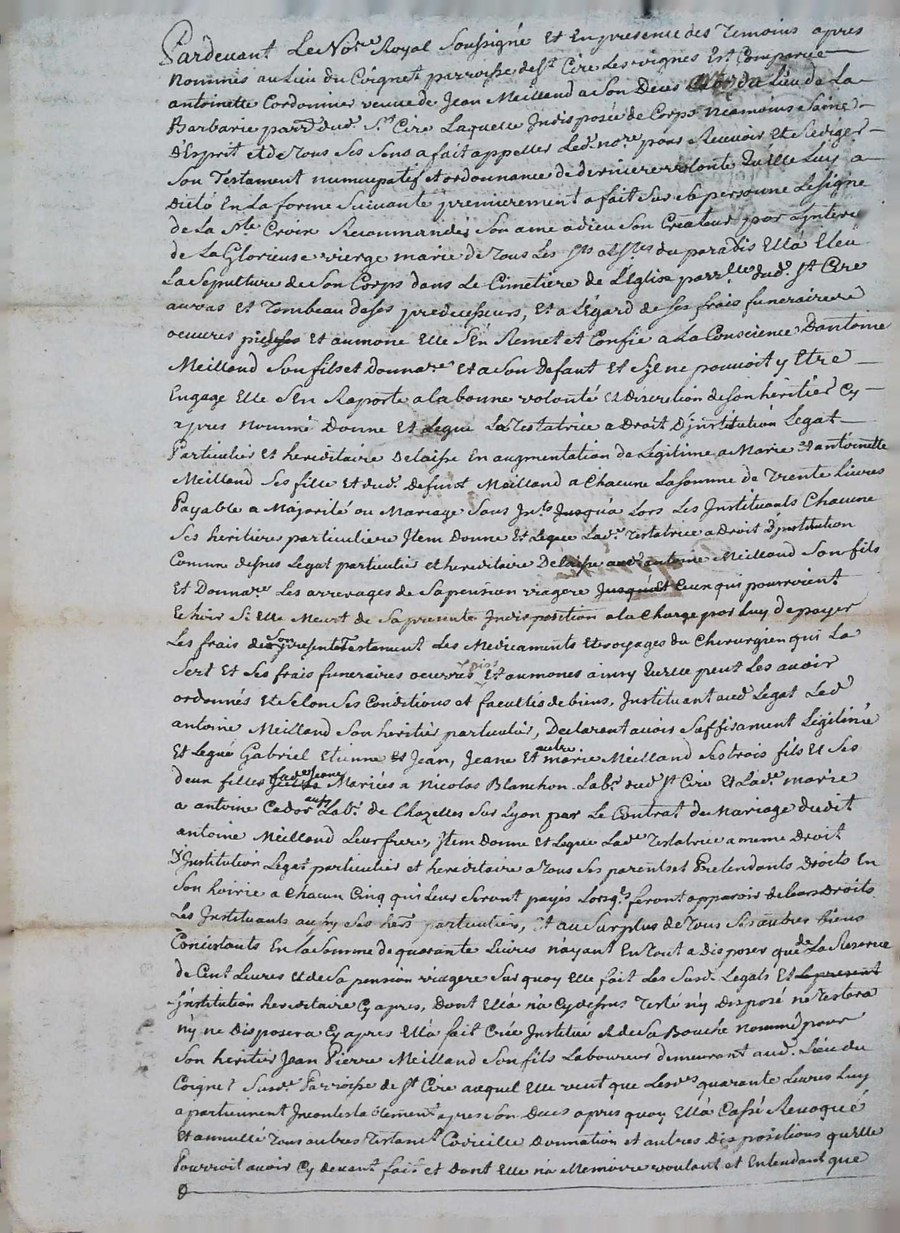 Pardevant Le Nore Royal Soussigné et En presence des Temoins apres
Nommés au Lieu du Coignet parroisse de St Cire Les vignes Est Comparüe
antoinette Cordonnier veuve de Jean Meilland a Son Deces du Lieu de La
Barbarie parrd dud. St Cire Laquelle Indisposée de Corps neamoins Saine
D'Esprit et de Tous Ses Sens a fait appeller Led. nore pour Recevoir Et Rediger
Son Testament nuncupatif et ordonnance de derniere volonté Qu'elle Luy a
Dicté En La forme Suivante premierement a fait Sur Sa personne Le Signe
de La Ste Croix Recommandée Son ame a dieu Son Createur par L'Interv.
de La Glorieuse vierge marie de Tous Les Sts et Stes du paradis Ella Eleu
La Sepulture de Son Corps dans Le Cimetiere de L'Eglise parrlle dud. St Cire
au vas Et Tombeau de Ses predecesseurs, Et a L'Egard de Ses frais funeraire
oeuvres pieuses Et aumone Elle S'En Remet et Confie a La Conscience D'antoine
Meilland Son fils et Donnare Et a Son Defaut Et S'yl ne pouvoit y Etre
Engage Elle S'En Raporte a la bonne volonté Et discretion de Son héritier Cy
apres nommé Donne Et Legue La Testatrice a Droit D'institution Legat
Particulier Et hereditaire Delaisse En augmentation de Légitime a Marie Et antoinette
Meilland Ses fille Et dud. Defunt Meilland a Chacune La Somme de Trente Livres
Payable a Majorité ou Mariage Sans Jnts Jusqu'a Lors Les Jnstituants Chacune
Ses heritieres particuliere Jtem Donne Et Legue Lade Testatrice a Droit d'institution
Comme dessus Legat particulier et hereditaire Delaisse aud. antoine Meilland Son fils
Et Donnare Les arrerages de Sa pension viagere Jusqu'a Et Ceux qui pourroient
Echoir Si Elle Meurt de Sa presente Indisposition a la Charge par Luy de payer
Les frais de Son present Testament Les Medicaments Et voyages du Chirurgien qui La
Sert Et Ses frais funeraires oeuvres pies Et aumones ainsy qu'elle peut Les avoir
ordonnés Et Selon Ses Conditions et facultés de biens, Jnstituant aud Legat Led
antoine Meilland Son heritier particulier, Declarant avoir Suffisament Légitimé
Et Legué Gabriel Etienne et Jean, Jeane Et autre marie Meilland Ses trois fils Et Ses
deux filles Lade Jeane Mariées a Nicolas Blanchon Labr. dud St Cire Et Lade. marie
a antoine Cador aussy Labr. de Chazelles Sur Lyon par Le Contrat de Mariage dudit
antoine Meilland Leur frere, Jtem Donne Et Legue Lade Testatrice a meme Droit
D'Institution Legat particulier et hereditaire a Tous Ses parents et Pretendants Droits En
Son hoirie a Chacun Cinq qui Leur Seront payés Lorsqls feront apparoir de Leurs Droits
Les Jnstituants aussy Ses hers particuliers, Et au Surplus de Tous Ses autres biens
Concistants En La Somme de quarante Livres n'ayant En tout a disposer que de La Reserve
de Cent Livres Et de Sa pension viagere Sur quoy Elle fait Les Susd. Legats Et Le present
jnstitution hereditaire Cy apres, Dont Ella n'a Cy dessus Testé n'y Disposé ne Testera
n'y ne Disposera Cy apres Ella fait Créé Jnstitué Et de Sa Bouche nommé pour
Son héritier Jean Pierre Meilland Son fils Laboureur demeurant aud. Lieu du
Coignet Susde Parroisse de St Cire auquel Elle veut que Lesdes quarante Livres Luy
apartiennent Jncontestablement apres Son Deces apres quoy Ella Cassé Revoqué
Et annullé Tous autres Testamt. Codicille Donnation et autres Dispositions qu'Elle
Pourroit avoir Cy devant fait et Dont Elle n'a Memoire voulant et Entendant que